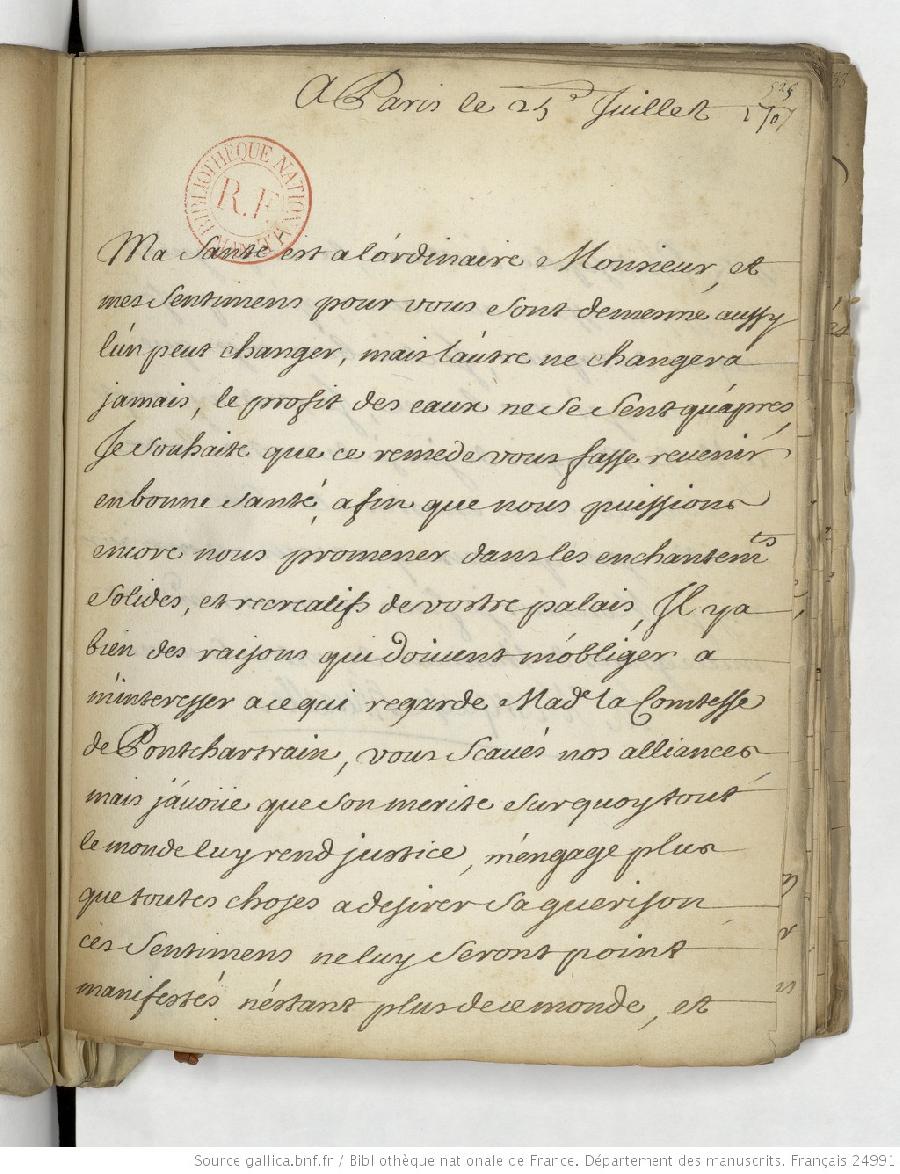 A Paris le 25e Juillet 1707
525
BIBLIOTHÈQUE NATIONALE
R.F.
Ma Santé est a l'ordinaire Monsieur, et
mes Sentimens pour vous Sont de mesme, aussy
l'un peut changer, mais l'autre ne changera
jamais, le profit des eaux ne Se Sent qu'apres,
Je Souhaite que ce remede vous fasse revenir
en bonne Santé, afin que nous puissions
encore nous promener dans les enchantemts
Solides, et recreatifs de vostre palais, Il y a
bien des raisons qui doiuent m'obliger a
m'interesser a ce qui regarde Made la Comtesse
de Pontchartrain, vous Scaués nos alliances
mais j'auoüe que Son merite Sur quoy tout
le monde luy rend justice, m'engage plus
que toutes choses a desirer Sa guerison
ces Sentimens ne luy Seront point
manifestés n'estant plus de ce monde, et
Source gallica.bnf.fr / Bibliothèque nationale de France. Département des manuscrits. Français 24991